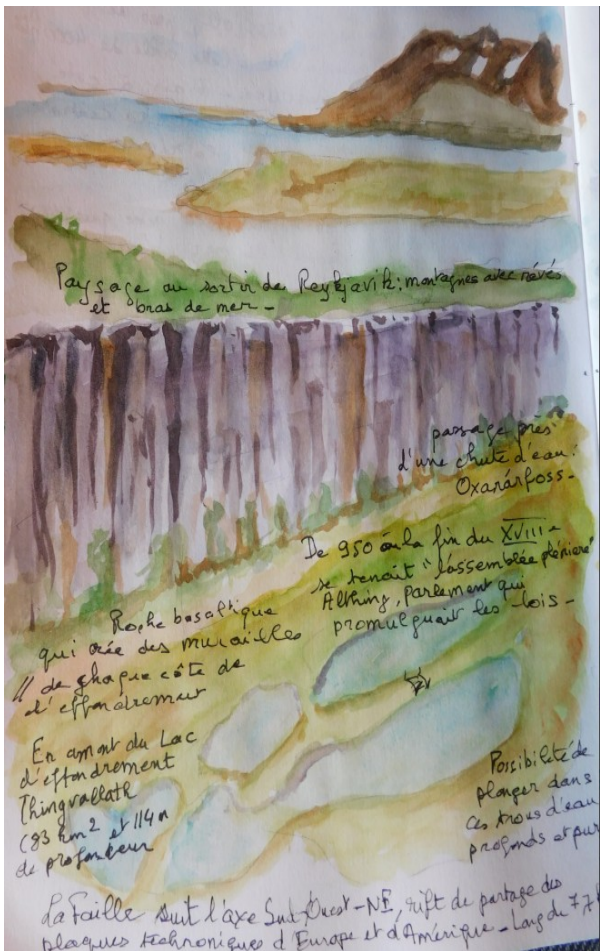 Paysage au sortir de Reykjavik : montagnes avec névés
et bras de mer -
passage près
d'une chute d'eau :
Oxarárfoss -
De 950 à la fin du XVIII e
se tenait "l'assemblée plénière"
Althing, parlement qui
promulguait les lois -
Roche basaltique
qui crée des murailles
// de chaque côté de
l'effondrement
En amont du Lac
d'effondrement
Thingvallath
(83 km2 et 114 m
de profondeur
Possibilité de
plonger dans
ces trous d'eau
profonds et pur
La Faille suit l'axe Sud-Ouest - NE, rift de partage des
plaques techroniques d'Europe et d'Amérique - Long de 7,7